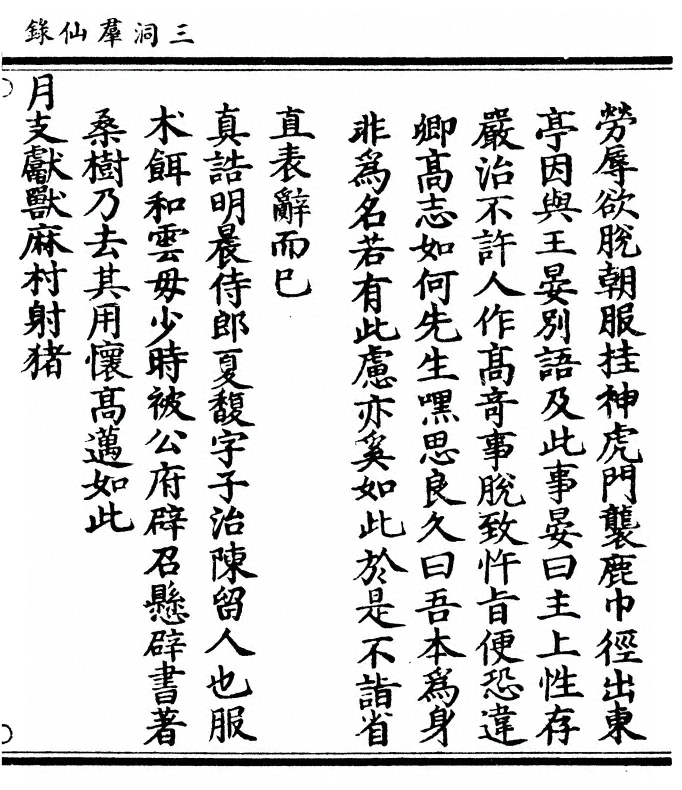 三洞羣仙錄
勞辱欲脫朝服挂神虎門襲鹿巾徑出東
亭因與王晏別語及此事晏曰主上性存
嚴治不許人作高竒事脫致忤旨便恐違
卿高志如何先生嘿思良久曰吾本爲身
非爲名若有此慮亦奚如此於是不詣省
直表辭而已
真誥明晨侍郎夏馥字子治陳留人也服
术餌和雲母少時被公府辟召懸辟書著
桑樹乃去其用懷高邁如此
月支獻獸麻村射猪